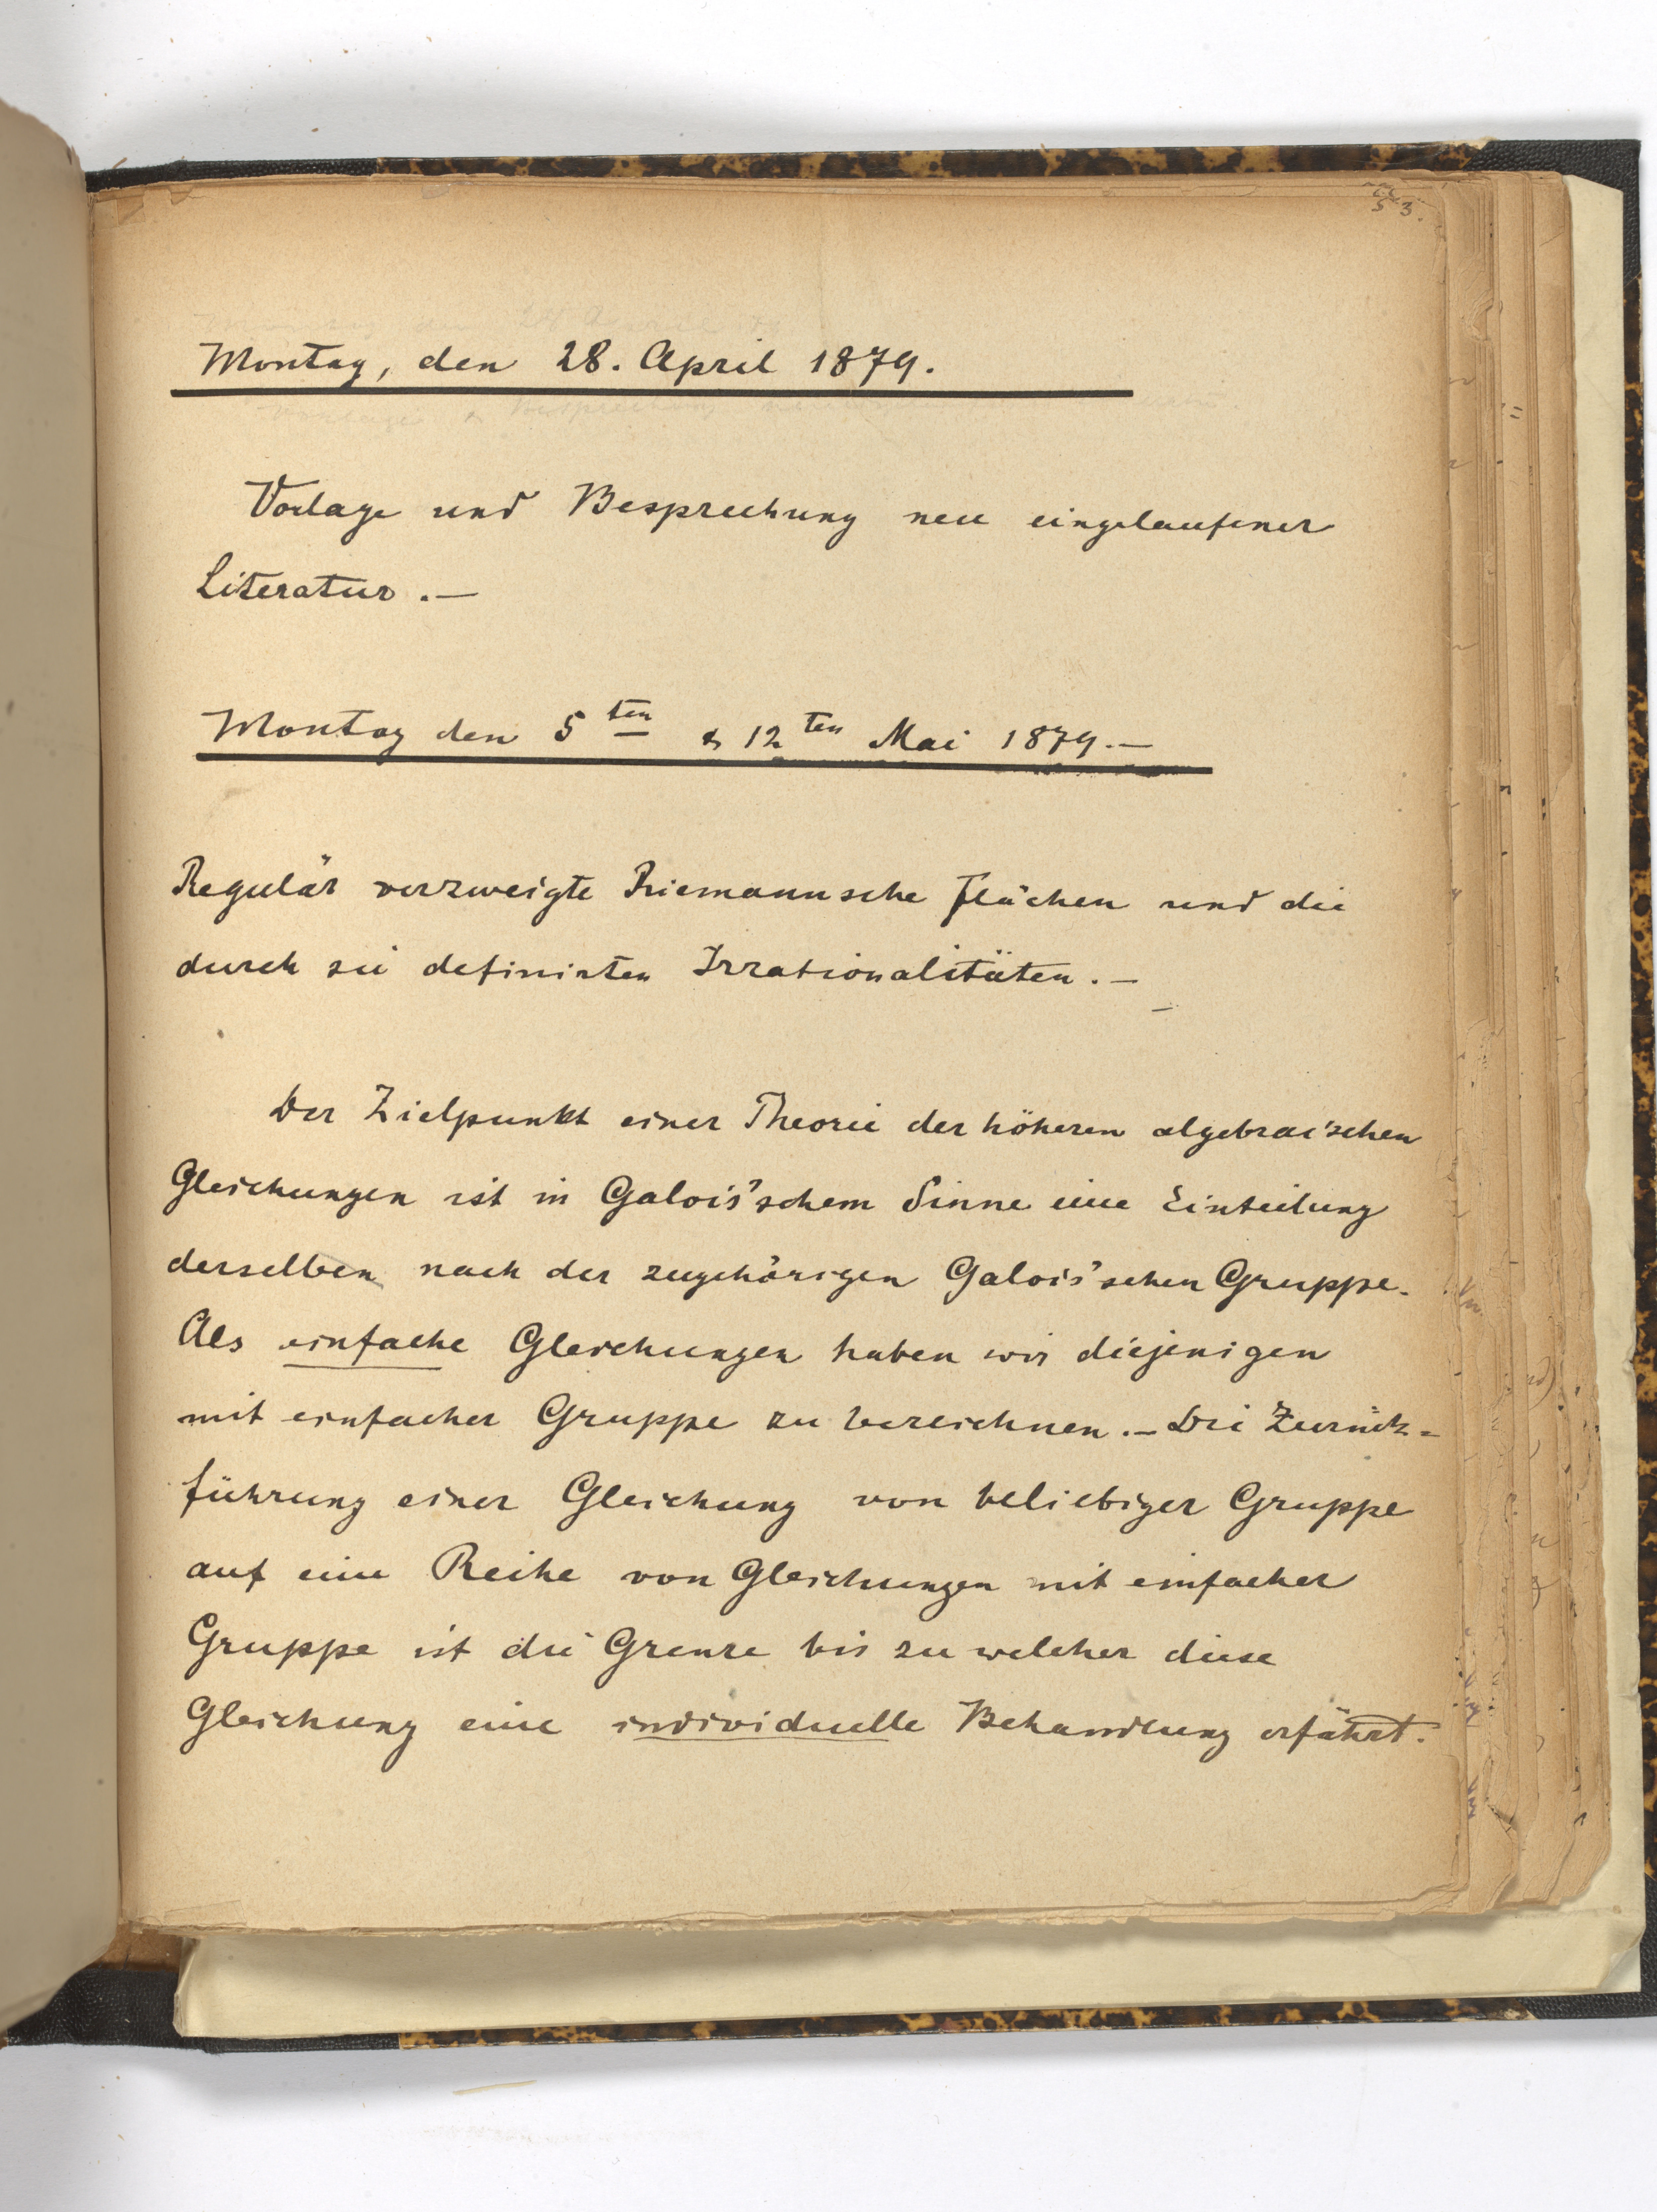 53.
Montag, den 28. April 1879.
Vorlage und Besprechung neu eingelaufener
Literatur.—
Montag den 5ten & 12ten Mai 1879.—
Regulär verzweigte Riemannsche Flächen und die
durch sie definirten Irrationalitäten.—
Der Zielpunkt einer Theorie der höheren algebraischen
Gleichungen ist in Galois'schem Sinne eine Einteilung
derselben nach der zugehörigen Galois'schen Gruppe.
Als einfache Gleichungen haben wir diejenigen
mit einfacher Gruppe zu bezeichnen.— Die Zurück=
führung einer Gleichung von beliebiger Gruppe
auf eine Reihe von Gleichungen mit einfacher
Gruppe ist die Grenze bis zu welcher diese
Gleichung eine individuelle Behandlung erfährt.